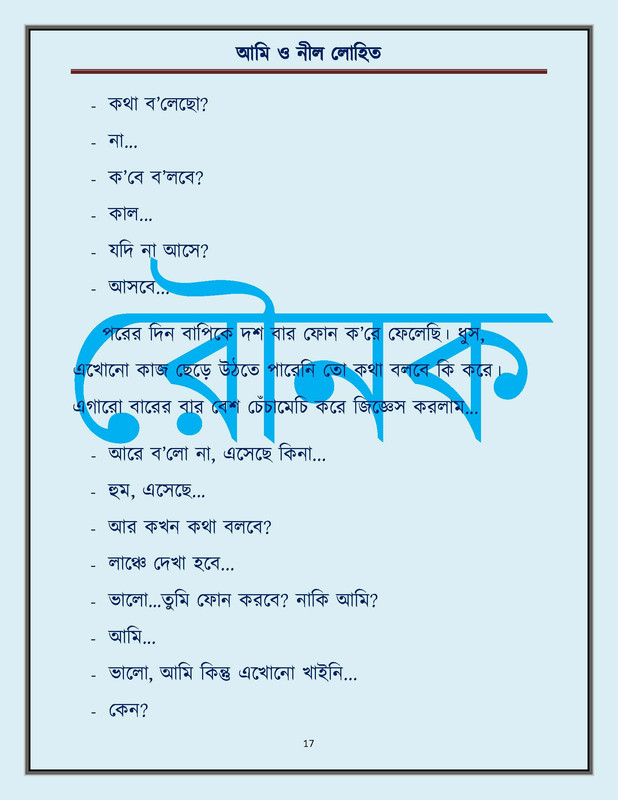 আমি ও নীল লোহিত
- কথা ব’লেছো?
- না...
- ক’বে ব’লবে?
- কাল...
- যদি না আসে?
- আসবে...
পরের দিন বাপিকে দশ বার ফোন ক’রে ফেলেছি। ধুস,
এখোনো কাজ ছেড়ে উঠতে পারেনি তো কথা বলবে কি করে।
এগারো বারের বার বেশ চেঁচামেচি করে জিজ্ঞেস করলাম...
রৌনক
- আরে ব’লো না, এসেছে কিনা...
- হুম, এসেছে...
- আর কখন কথা বলবে?
- লাঞ্চে দেখা হবে...
- ভালো...তুমি ফোন করবে? নাকি আমি?
- আমি...
- ভালো, আমি কিন্তু এখোনো খাইনি...
- কেন?
17